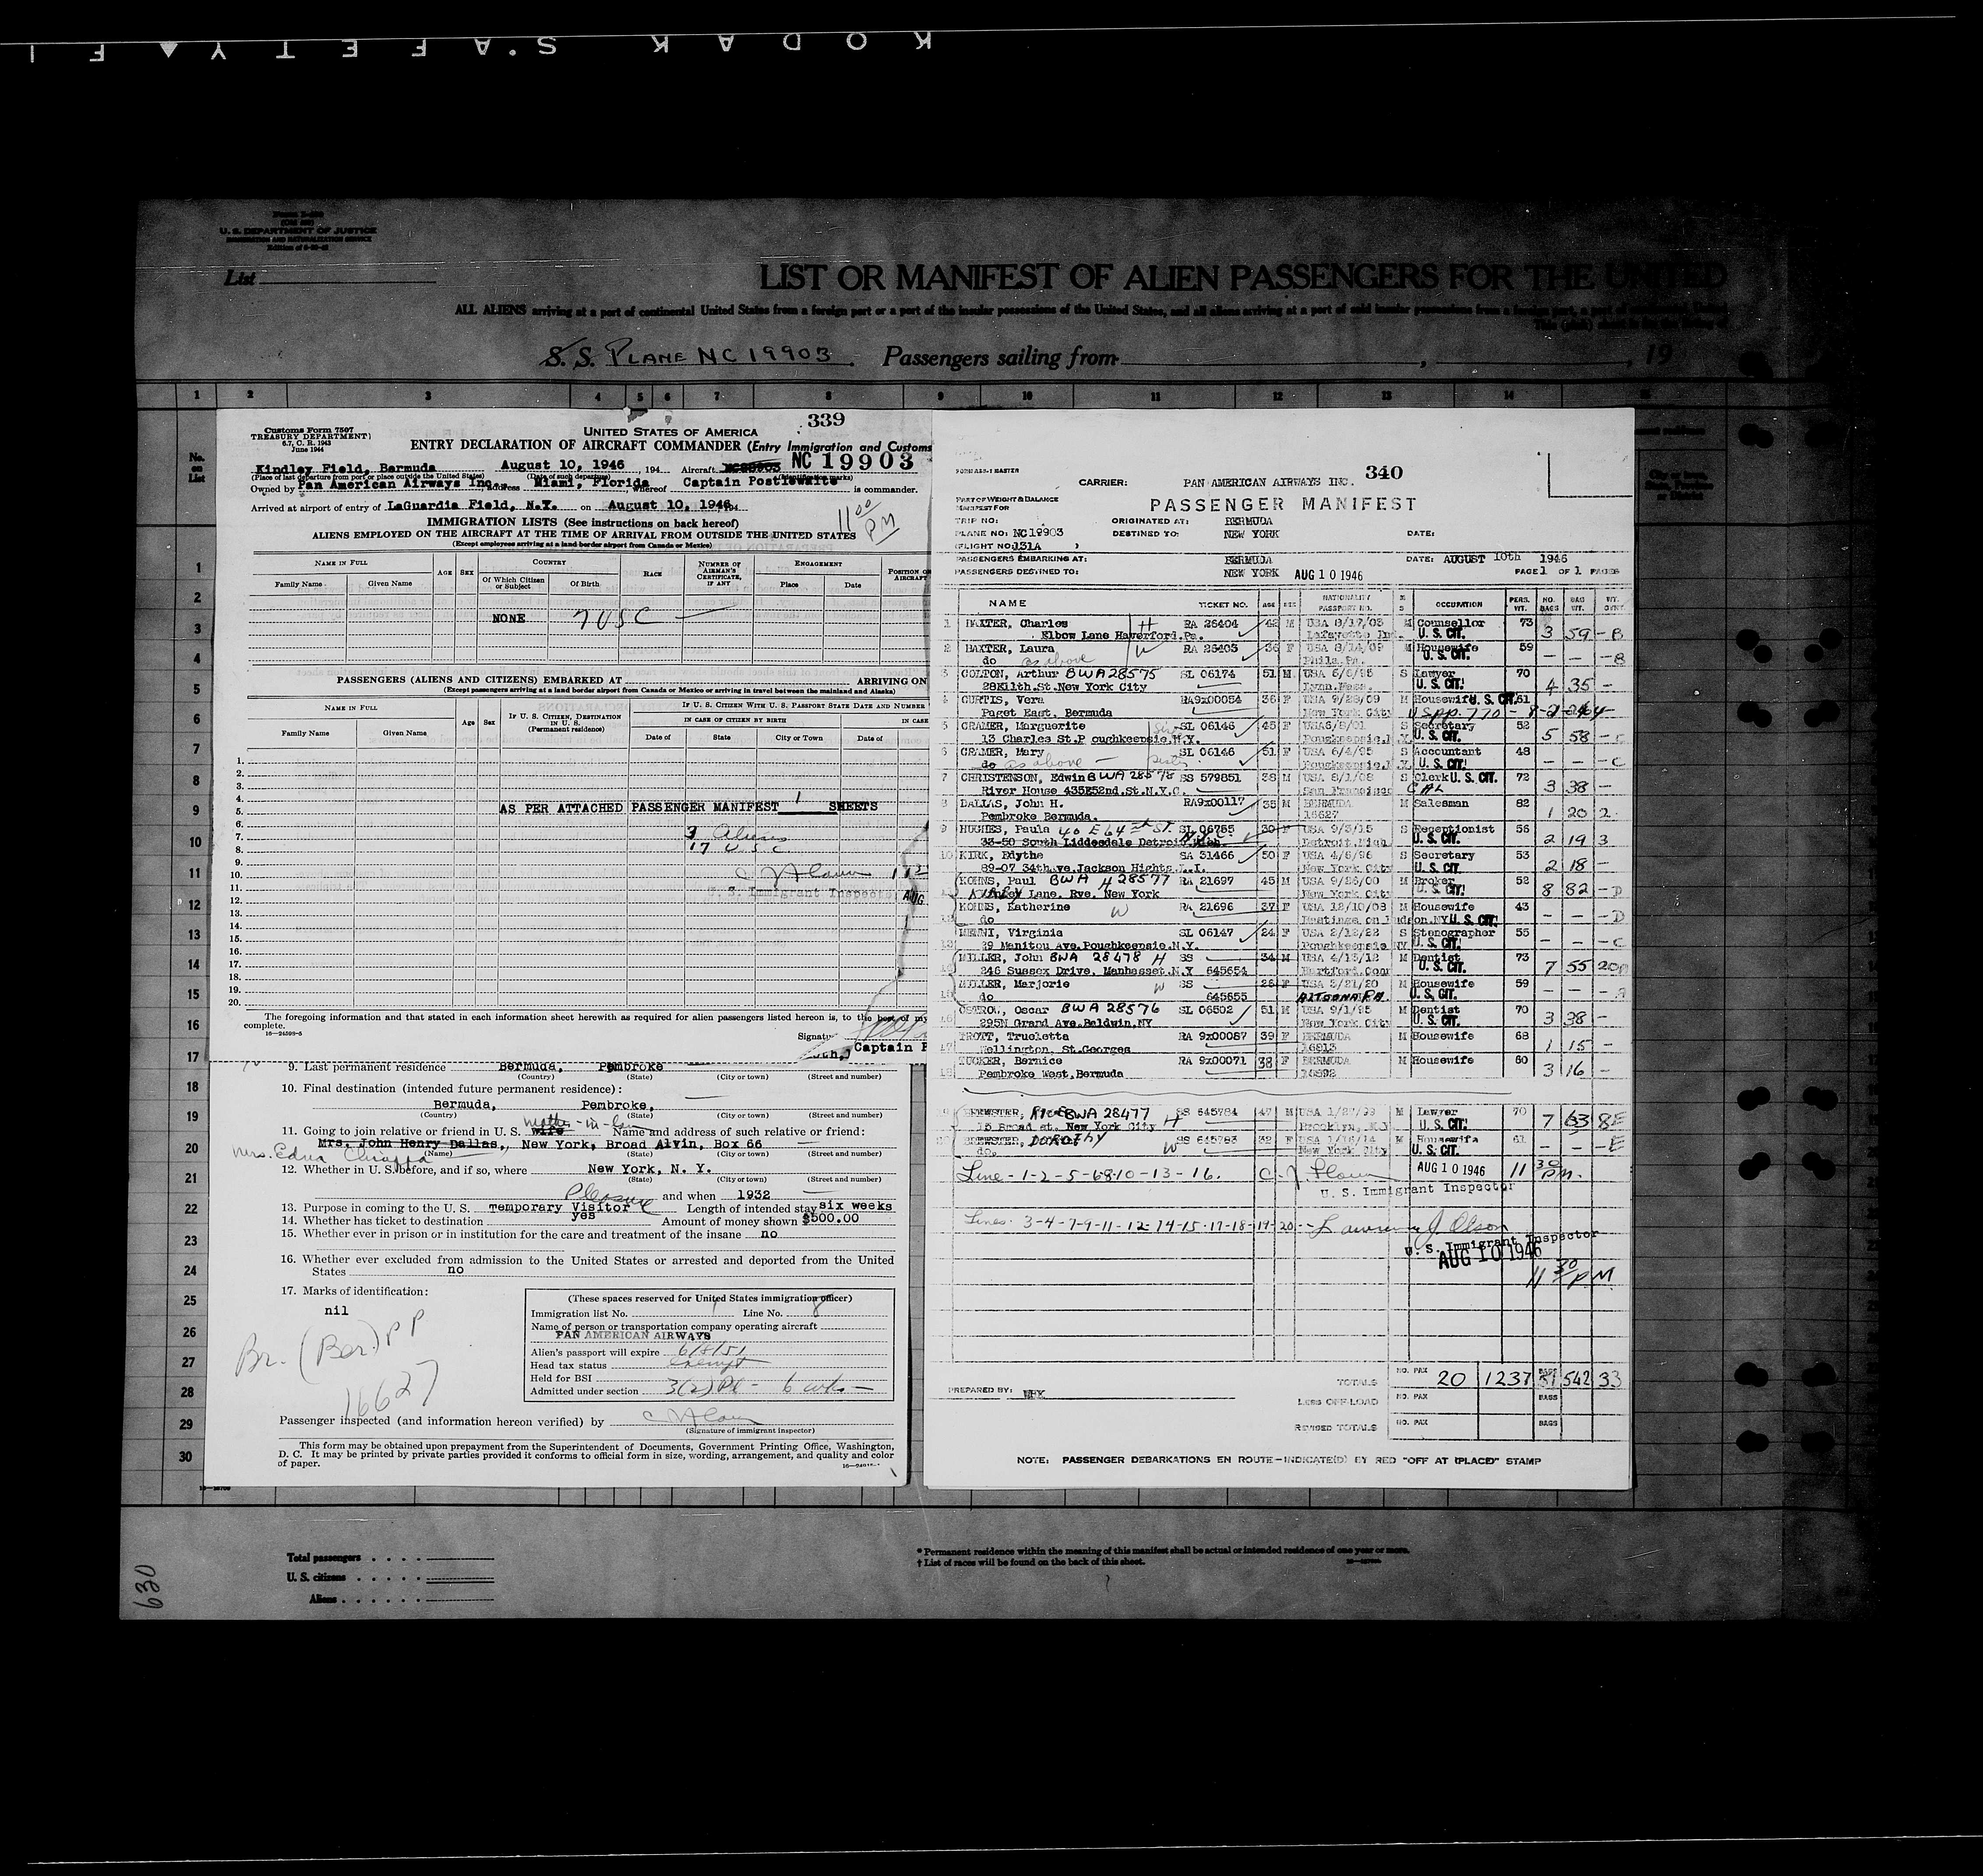 KODAK SAFETY FI
U. S. DEPARTMENT OF JUSTICE
IMMIGRATION AND NATURALIZATION SERVICE
List
LIST OR MANIFEST OF ALIEN PASSENGERS FOR THE UNITED
ALL ALIENS arriving at a port of continental United States from a foreign port or a port of the insular possessions of the United States, and all aliens arriving at a port of said insular possessions from a foreign port, a port of continental United
S. S. PLANE NC 19903 Passengers sailing from , , 19
1 2 3 4 5 6 7 8 9 10 11 12 13 14 15
No. on List
339
Customs Form 7507
TREASURY DEPARTMENT
6.7, C. R. 1943
June 1944
UNITED STATES OF AMERICA
ENTRY DECLARATION OF AIRCRAFT COMMANDER (Entry Immigration and Customs
Kindley Field, Bermuda August 10, 1946 , 194 Aircraft NC 19903
(Place of last departure from port or place outside the United States) (Date of such departure) (Identification marks)
Owned by Pan American Airways Inc., address Miami, Florida, whereof Captain Postlewaite is commander.
Arrived at airport of entry of LaGuardia Field, N.Y. on August 10, 1946, 194
11 00 PM
IMMIGRATION LISTS (See instructions on back hereof)
ALIENS EMPLOYED ON THE AIRCRAFT AT THE TIME OF ARRIVAL FROM OUTSIDE THE UNITED STATES
(Except employees arriving at a land border airport from Canada or Mexico)
NAME IN FULL AGE SEX COUNTRY RACE NUMBER OF AIRMAN'S CERTIFICATE, IF ANY ENGAGEMENT POSITION ON AIRCRAFT
Family Name Given Name Of Which Citizen or Subject Of Birth Place Date
NONE 7 USC —
PASSENGERS (ALIENS AND CITIZENS) EMBARKED AT ARRIVING ON
(Except passengers arriving at a land border airport from Canada or Mexico or arriving in travel between the mainland and Alaska)
NAME IN FULL Age Sex IF U. S. CITIZEN, DESTINATION IN U. S. (Permanent residence) IF U. S. CITIZEN WITH U. S. PASSPORT STATE DATE AND NUMBER
IN CASE OF CITIZEN BY BIRTH IN CASE
Family Name Given Name Date of State City or Town Date of
1.
2.
3.
4.
AS PER ATTACHED PASSENGER MANIFEST 1 SHEETS
5.
6.
7. 3 Aliens
8. 17 USC
9.
10.
11. U. S. Immigrant Inspector AUG
12.
13.
14.
15.
16.
17.
18.
19.
20.
The foregoing information and that stated in each information sheet herewith as required for alien passengers listed hereon is, to the best of my
complete.
Signatu
Captain P
9. Last permanent residence Bermuda, Pembroke
(Country) (State) (City or town) (Street and number)
10. Final destination (intended future permanent residence):
Bermuda, Pembroke,
(Country) (State) (City or town) (Street and number)
mother-in-law
11. Going to join relative or friend in U. S. wife Name and address of such relative or friend:
Mrs. John Henry Dallas, New York, Broad Alvin, Box 66
(Name) (State) (City or town) (Street and number)
Mrs. Edna
12. Whether in U. S. before, and if so, where New York, N. Y.
(State) (City or town) (Street and number)
and when 1932
Pleasure
13. Purpose in coming to the U. S. Temporary Visitor Length of intended stay six weeks
14. Whether has ticket to destination yes Amount of money shown $500.00
15. Whether ever in prison or in institution for the care and treatment of the insane no
16. Whether ever excluded from admission to the United States or arrested and deported from the United
States no
17. Marks of identification:
nil
Br. (Ber.) PP
16627
(These spaces reserved for United States immigration officer)
Immigration list No. 1 Line No. 8
Name of person or transportation company operating aircraft
PAN AMERICAN AIRWAYS
Alien's passport will expire 6/8/51
Head tax status exempt
Held for BSI
Admitted under section 3(2) Pl - 6 wks —
Passenger inspected (and information hereon verified) by
(Signature of immigrant inspector)
This form may be obtained upon prepayment from the Superintendent of Documents, Government Printing Office, Washington,
D. C. It may be printed by private parties provided it conforms to official form in size, wording, arrangement, and quality and color
of paper.
340
CARRIER: PAN AMERICAN AIRWAYS INC.
PART OF WEIGHT & BALANCE
MANIFEST FOR
PASSENGER MANIFEST
TRIP NO: ORIGINATED AT: BERMUDA
PLANE NO: NC 19903 DESTINED TO: NEW YORK DATE:
(FLIGHT NO. 131A )
PASSENGERS EMBARKING AT: BERMUDA DATE: AUGUST 10th 1946
PASSENGERS DESTINED TO: NEW YORK AUG 10 1946 PAGE 1 OF 1 PAGES
NAME TICKET NO. AGE SEX NATIONALITY PASSPORT NO. M S OCCUPATION PERS. WT. NO. BAGS BAG WT.
1 BAXTER, Charles H RA 26404 42 M USA 8/17/03 M Counsellor 73
Elbow Lane Haverford.Pa. Lafayette Ind. U. S. CIT. 3 59 - B
2 BAXTER, Laura W RA 26403 36 F USA 8/14/09 M Housewife 59
do as above Phila.Pa. U. S. CIT. — — - B
3 COLTON, Arthur BWA 28575 SL 06174 51 M USA 6/6/95 S Lawyer 70
28E11th.St.New York City Lynn.Mass. U. S. CIT. 4 35 -
4 CURTIS, Vera RA9x00054 36 F USA 9/29/09 M Housewife U. S. CIT. 61
Paget East. Bermuda New York City
5 CRAMER, Marguerite SL 06146 45 F USA 6/8/01 S Secretary 52
13 Charles St.P oughkeepsie.N.Y. Poughkeepsie.N.Y. U. S. CIT. 5 58 - C
6 CRAMER, Mary SL 06146 51 F USA 6/4/95 S Accountant 48
do as above — Poughkeepsie.N.Y. U. S. CIT. — — - C
7 CHRISTENSON, Edwin BWA 28578 SS 579851 38 M USA 8/1/08 S Clerk U. S. CIT. 72
River House 435E52nd.St.N.Y.C. San Francisco CAL 3 38 -
8 DALLAS, John H. RA9x00117 35 M BERMUDA M Salesman 82
Pembroke Bermuda. 16627 1 20 2
9 HUGHES, Paula 40 E 64th ST. N.Y.C. SL 06755 30 F USA 9/3/15 S Receptionist 56
33-50 South Liddesdale Detroit.Mich. Detroit.Mich U. S. CIT. 2 19 3
10 KIRK, Edythe SA 31466 50 F USA 4/6/96 S Secretary 53
89-07 34th.ve.Jackson Hights.L.I. New York City U. S. CIT. 2 18 -
KOHNS, Paul BWA H 28577 RA 21697 45 M USA 9/26/00 M Broker 52
Lane. Rye. New York New York City U. S. CIT. 8 82 - D
KOHNS, Katherine W RA 21696 37 F USA 12/10/08 M Housewife 43
do Hastings on Hudson.NY U. S. CIT. — — - D
MENNI, Virginia SL 06147 24 F USA 2/12/22 S Stenographer 55
29 Manitou Ave.Poughkeepsie.N.Y. Poughkeepsie NY U. S. CIT. — — - C
MILLER, John BWA 28478 H SS 34 M USA 4/13/12 M Dentist 73
246 Sussex Drive. Manhasset.N.Y 645654 Hartford.Conn U. S. CIT. 7 55 20
MILLER, Marjorie W SS 26 F USA 3/21/20 M Housewife 59
do 645655 ALTOONA PA. U. S. CIT. — — -
OSTROW, Oscar BWA 28576 SL 06502 51 M USA 9/1/95 M Dentist 70
295N Grand Ave.Baldwin.NY New York City U. S. CIT. 3 38 -
TROTT, Trueletta RA 9x00087 39 F BERMUDA M Housewife 68
Wellington. St.Georges 16813 1 15 -
ZUCKER, Bernice RA 9x00071 38 F BERMUDA M Housewife 60
Pembroke West.Bermuda 3 16 -
BREWSTER, BWA 28477 SS 645784 47 M USA M Lawyer 70
15 Broad st. New York City H Brooklyn. U. S. CIT. 7 63 8 E
BREWSTER, DOROTHY W SS 645783 32 F USA 1/16/14 M Housewife 61
do. New York City U. S. CIT. — — - E
Line - 1-2-5-6-8-10-13-16. AUG 10 1946 11 30 PM.
U. S. Immigrant Inspector
Lines. 3-4-7-9-11-12-14-15-17-18-19-20 - Lawrence J Olson
U. S. Immigrant Inspector
AUG 10 1946
11 30 PM
TOTALS NO. PAX 20 1237 BAGS 51 542 33
PREPARED BY:
LESS OFF-LOAD NO. PAX BAGS
REVISED TOTALS NO. PAX BAGS
NOTE: PASSENGER DEBARKATIONS EN ROUTE—INDICATE(D) BY RED "OFF AT (PLACE)" STAMP
1
2
3
4
5
6
7
8
9
10
11
12
13
14
15
16
17
18
19
20
21
22
23
24
25
26
27
28
29
30
Total passengers
U. S. citizens
Aliens
* Permanent residence within the meaning of this manifest shall be actual or intended residence of one year or more.
† List of races will be found on the back of this sheet.
630